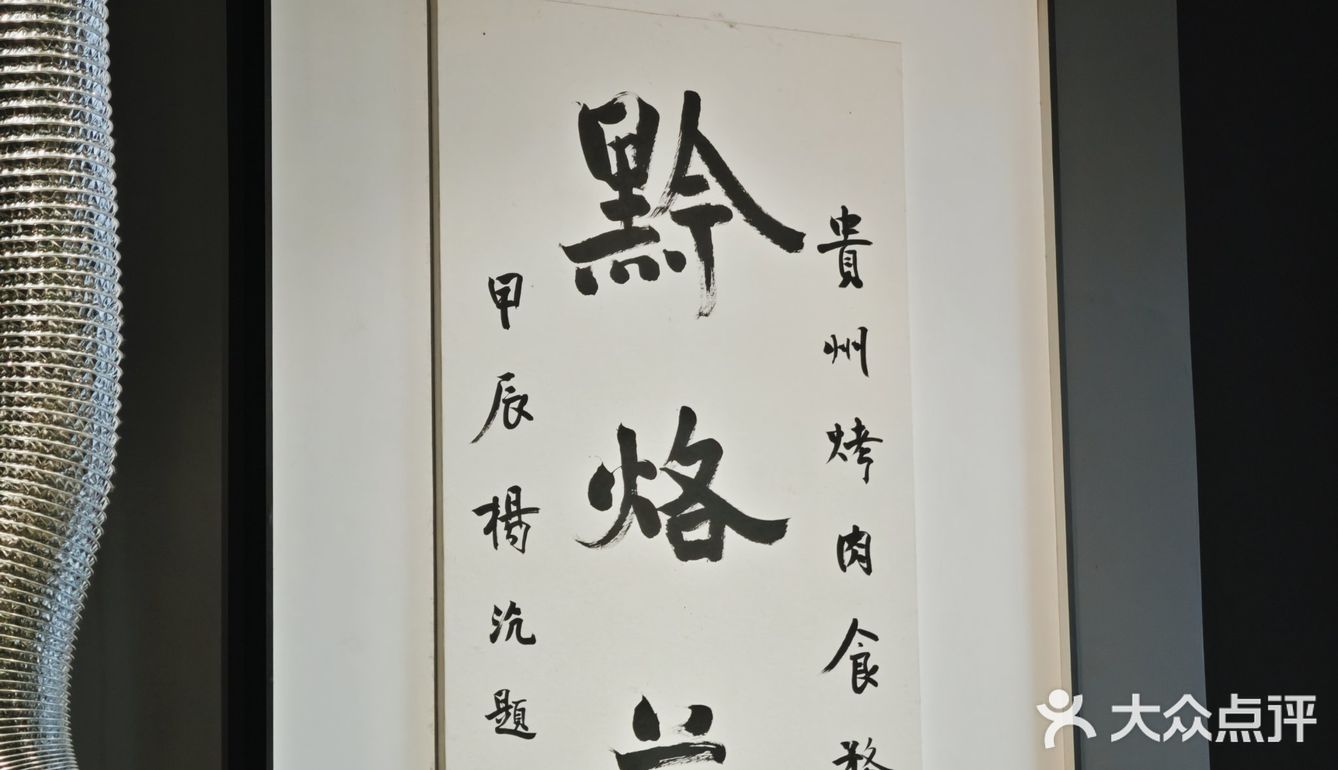 貴州烤肉食
黔烙
甲辰楊沇題
大众点评